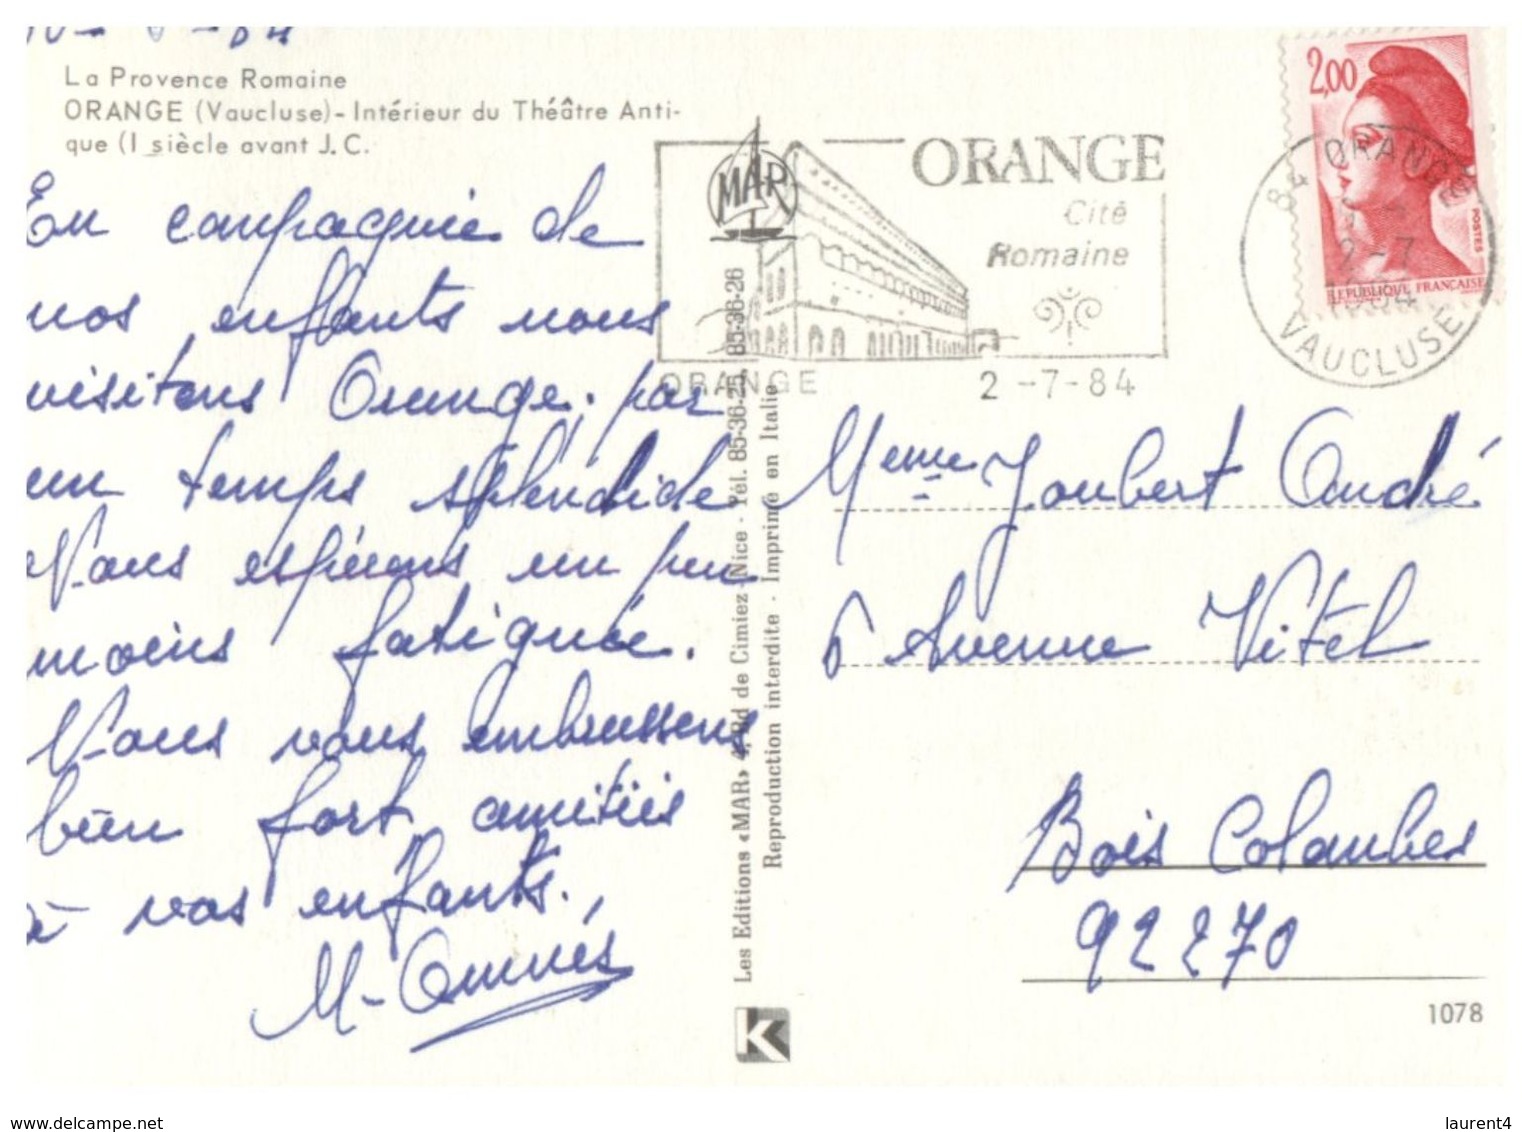 La Provence Romaine
ORANGE (Vaucluse)-Intérieur du Théâtre Anti-
que (I siècle avant J.C.
En compagnie de
nos enfants nous
visitons Orange, par
un temps splendide
Vous espérons un peu
moins fatiguée.
Nous vous embrassons
bien fort amitiés
à vos enfants.
MAR
ORANGE
Cité
Romaine
ORANGE 2 -7-84
84 ORANGE
2-7
1984
VAUCLUSE
2,00
POSTES
REPUBLIQUE FRANCAISE
Les Editions «MAR» 4, Bd de Cimiez - Nice - Tél. 85-36-25 85-36-26
Reproduction interdite - Imprimé en Italie
Meme Joubert André
6 Avenue Vitel
Bois Colombes
92270
K
1078
www.delcampe.net
laurent4